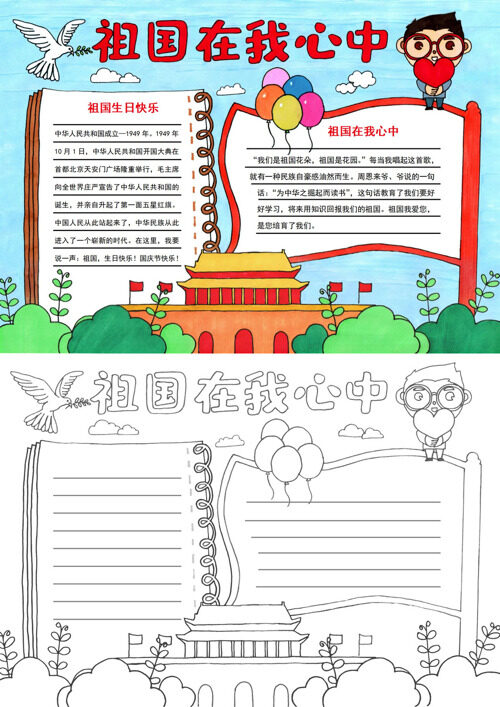 祖国在我心中
祖国生日快乐
中华人民共和国成立—1949 年。1949 年
10 月 1 日，中华人民共和国开国大典在
首都北京天安门广场隆重举行，毛主席
向全世界庄严宣告了中华人民共和国的
诞生，并亲自升起了第一面五星红旗。
中国人民从此站起来了，中华民族从此
进入了一个崭新的时代。在这里，我要
说一声：祖国，生日快乐！国庆节快乐！
祖国在我心中
“我们是祖国花朵，祖国是花园。”每当我唱起这首歌，
就有一种民族自豪感油然而生。周恩来爷、爷说的一句
话：“为中华之掘起而读书”，这句话教育了我们要好
好学习，将来用知识回报我们的祖国。祖国我爱您，
是您培育了我们。
祖国在我心中